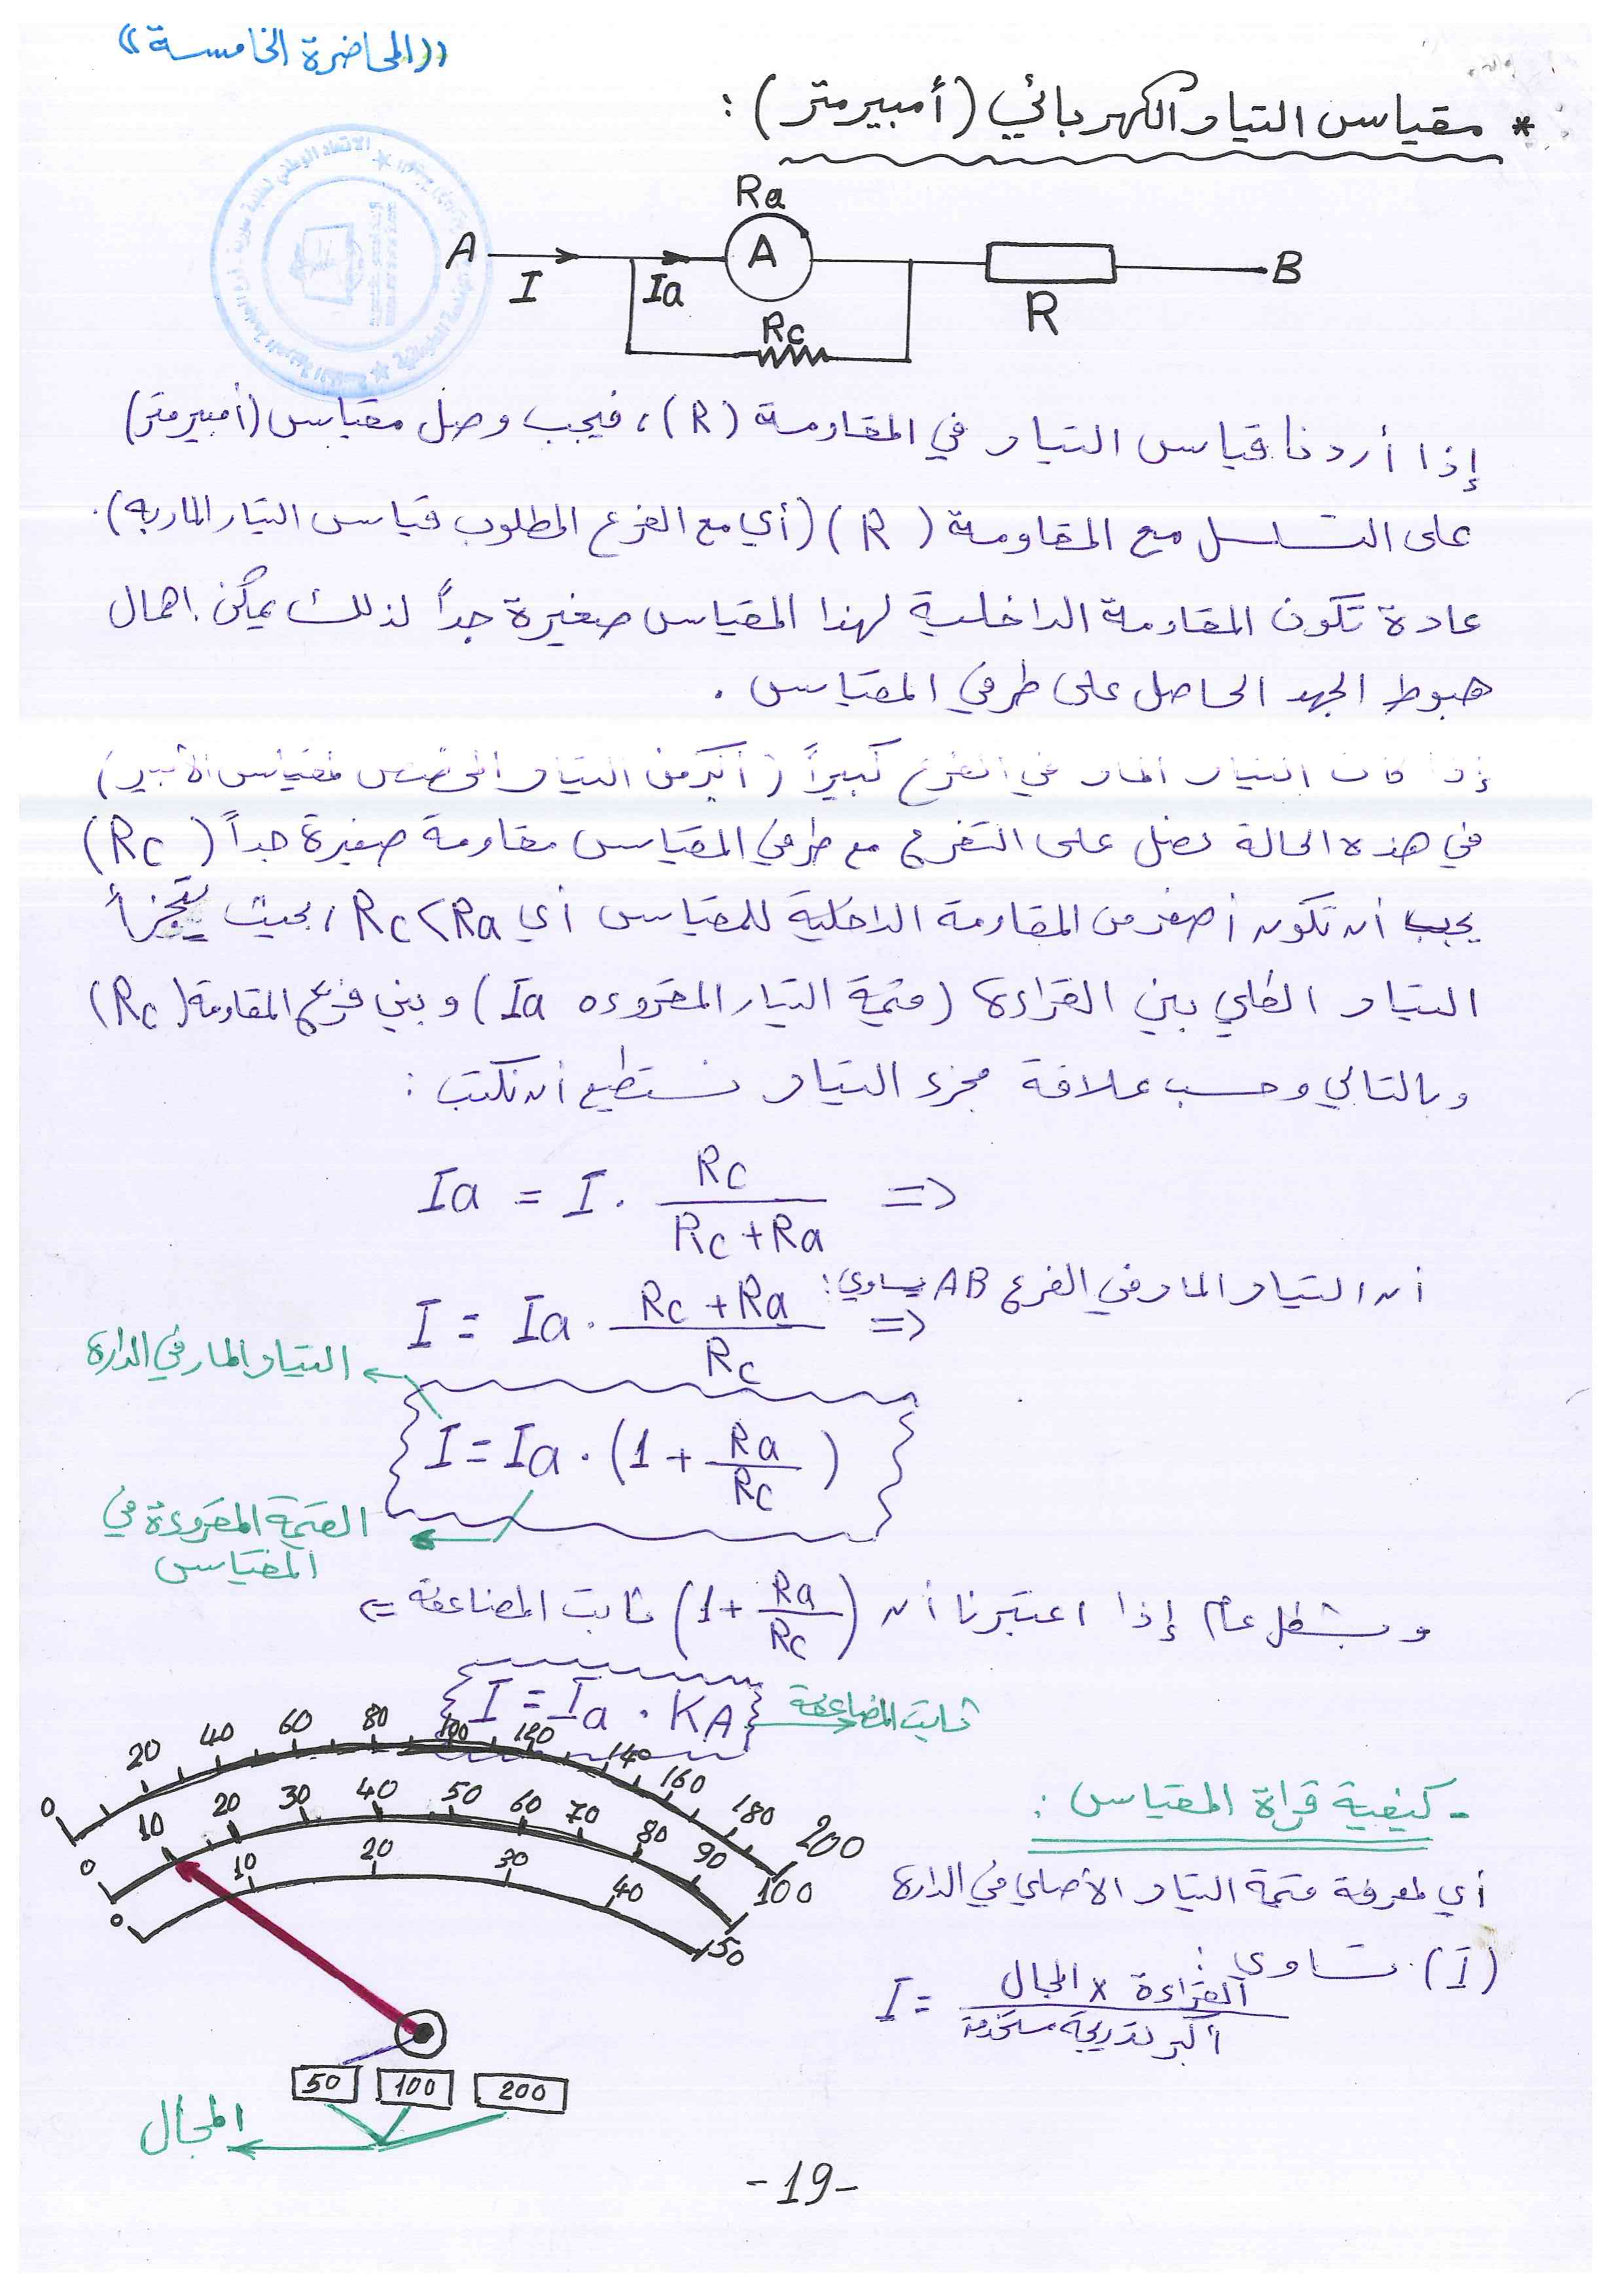 ((المحاضرة الخامسة))
* مقياس التيار الكهربائي (أمبيرمتر) :
Ra
A I Ia A R B
Rc
إذا أردنا قياس التيار في المقاومة (R) ، فيجب وصل مقياس (أمبيرمتر)
على التسلسل مع المقاومة (R) (أي مع الفرع المطلوب قياس التيار المار به) .
عادة تكون المقاومة الداخلية لهذا المقياس صغيرة جداً لذلك يمكن اهمال
هبوط الجهد الحاصل على طرفي المقياس .
إذا كان التيار المار في الفرع كبيراً (أكبر من التيار المخصص لمقياس الأمبير)
في هذه الحالة نصل على التفرع مع طرفي المقياس مقاومة صغيرة جداً (Rc)
يجب أن تكون أصغر من المقاومة الداخلية للمقياس أي Rc<Ra ، بحيث يتجزأ
التيار الكلي بين القراءة (قيمة التيار المقروءه Ia) وبين فرع المقاومة (Rc)
وبالتالي وحسب علاقة مجزء التيار نستطيع أن نكتب :
Ia = I . Rc / (Rc + Ra) =>
أن التيار المار في الفرع AB يساوي :
I = Ia . (Rc + Ra) / Rc =>
التيار المار في الدارة
I = Ia . (1 + Ra / Rc)
القيمة المقروءة في
المقياس
وبشكل عام إذا اعتبرنا أن (1 + Ra / Rc) ثابت المضاعفة =>
I = Ia . KA ثابت المضاعفة
0 20 40 60 80 100 120 140 160 180 200
0 10 20 30 40 50 60 70 80 90 100
0 10 20 30 40 50
- كيفية قراة المقياس :
أي لمعرفة قيمة التيار الأصلي في الدارة
(I) تساوي :
I = القراءة × المجال / أكبر تدريجة مستخدمة
50 100 200
المجال
-19-